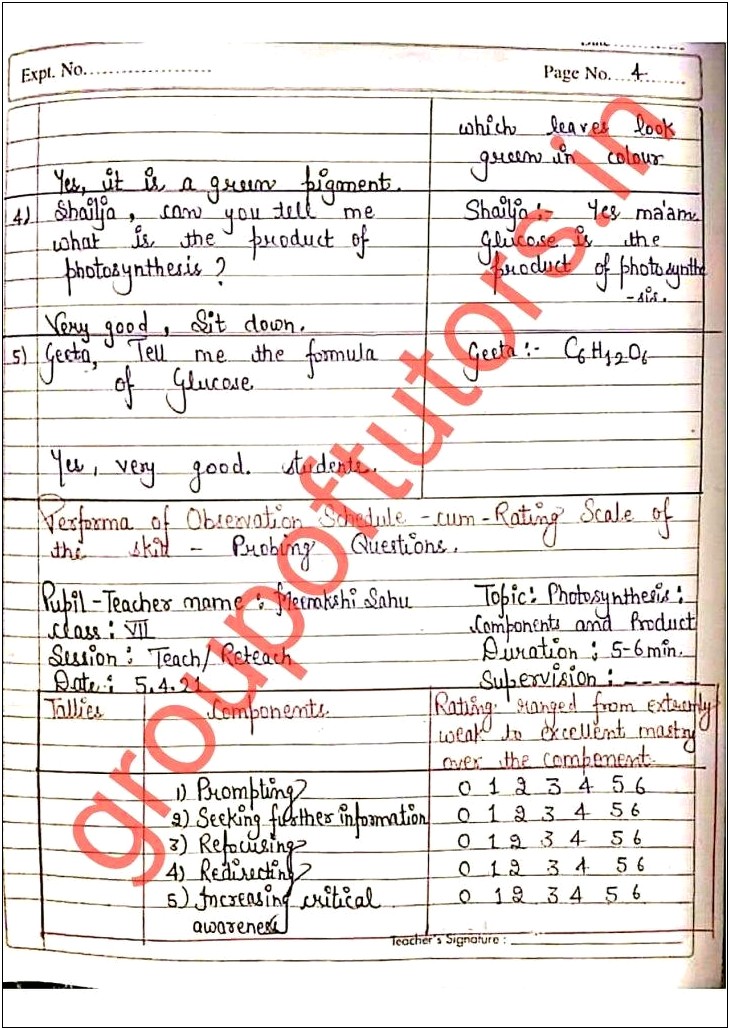 Expt. No.
Page No. 4
which leaves look
green in colour
Yes, it is a green pigment.
4) Shailja, can you tell me
what is the product of
photosynthesis?
Shailja:- Yes ma'am
glucose is the
product of photosynthe
-sis.
Very good, Sit down.
5) Geeta, Tell me the formula
of Glucose
Geeta:- C6H12O6
Yes, very good. students.
Performa of Observation Schedule -cum-Rating Scale of
the skill - Probing Questions.
Pupil-Teacher name: Meenakshi Sahu
Class: VII
Session: Teach/Reteach
Date: 5.4.21
Topic: Photosynthesis:
Components and Product
Duration: 5-6 min.
Supervision: -----
Tallies
Components
Rating ranged from extremly
weak to excellent mastry
over the component.
1) Prompting 0 1 2 3 4 5 6
2) Seeking further information 0 1 2 3 4 5 6
3) Refocusing 0 1 2 3 4 5 6
4) Redirecting 0 1 2 3 4 5 6
5) Increasing critical 0 1 2 3 4 5 6
awareness
Teacher's Signature:
groupoftutors.in